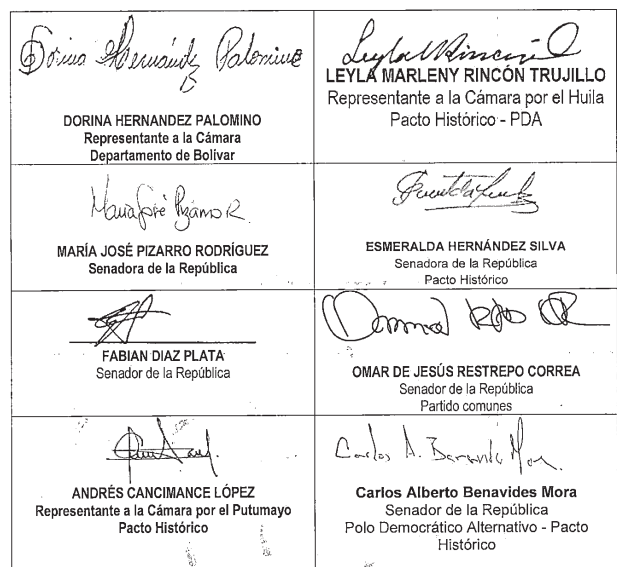 Dorina Hernández Palomino
DORINA HERNANDEZ PALOMINO
Representante a la Cámara
Departamento de Bolívar
LEYLA MARLENY RINCÓN TRUJILLO
Representante a la Cámara por el Huila
Pacto Histórico - PDA
María José Pizarro R.
MARÍA JOSÉ PIZARRO RODRÍGUEZ
Senadora de la República
ESMERALDA HERNÁNDEZ SILVA
Senadora de la República
Pacto Histórico
FABIAN DIAZ PLATA
Senador de la República
OMAR DE JESÚS RESTREPO CORREA
Senador de la República
Partido comunes
ANDRÉS CANCIMANCE LÓPEZ
Representante a la Cámara por el Putumayo
Pacto Histórico
Carlos A. Benavides Mora
Carlos Alberto Benavides Mora
Senador de la República
Polo Democrático Alternativo - Pacto
Histórico